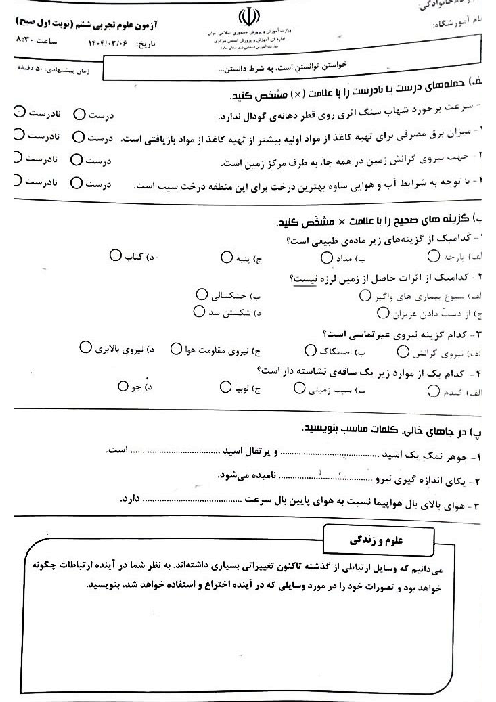 نام خانوادگی:
نام آموزشگاه:
وزارت آموزش و پرورش جمهوری اسلامی ایران
آزمون علوم تجربی ششم (نوبت اول صبح)
تاریخ: ۱۴۰۴/۰۳/۰۶ ساعت ۸:۳۰
خواستن توانستن است، به شرط دانستن...
زمان پیشنهادی: ۵۰ دقیقه
الف) جمله‌های درست یا نادرست را با علامت (×) مشخص کنید.
۱- سرعت برخورد شهاب سنگ اثری روی قطر دهانه‌ی گودال ندارد. درست نادرست
۲- میزان برق مصرفی برای تهیه کاغذ از مواد اولیه بیشتر از تهیه کاغذ از مواد بازیافتی است. درست نادرست
۳- جهت نیروی گرانش زمین در همه جا، به طرف مرکز زمین است. درست نادرست
۴- با توجه به شرایط آب و هوایی ساوه بهترین درخت برای این منطقه درخت سیب است. درست نادرست
ب) گزینه های صحیح را با علامت × مشخص کنید.
۱- کدامیک از گزینه‌های زیر ماده‌ی طبیعی است؟
الف) پارچه ب) مداد ج) پنبه د) کتاب
۲- کدامیک از اثرات حاصل از زمین لرزه نیست؟
الف) شیوع بیماری های واگیر ب) خشکسالی
ج) از دست دادن عزیزان د) شکستن سد
۳- کدام گزینه نیروی غیرتماسی است؟
الف) نیروی گرانش ب) اصطکاک ج) نیروی مقاومت هوا د) نیروی بالابری
۴- کدام یک از موارد زیر یک ساقه‌ی نشاسته دار است؟
الف) گندم ب) سیب زمینی د) جو
پ) در جاهای خالی، کلمات مناسب بنویسید.
۱- جوهر نمک یک اسید .................... و پرتقال اسید .................... است.
۲- یکای اندازه گیری نیرو .................... نامیده می‌شود.
۳- هوای بالای بال هواپیما نسبت به هوای پایین بال سرعت .................... دارد.
علوم و زندگی
می‌دانیم که وسایل ارتباطی از گذشته تاکنون تغییراتی بسیاری داشته‌اند. به نظر شما در آینده ارتباطات چگونه
خواهد بود و تصورات خود را در مورد وسایلی که در آینده اختراع و استفاده خواهد شد، بنویسید.